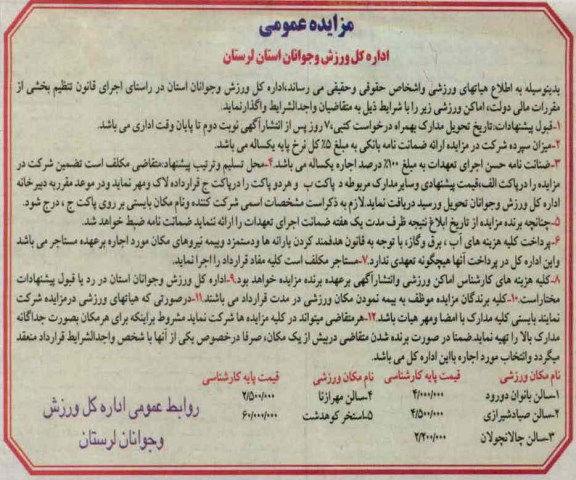 مزایده عمومی
اداره کل ورزش وجوانان استان لرستان
بدینوسیله به اطلاع هیاتهای ورزشی واشخاص حقوقی وحقیقی می رساند،اداره کل ورزش وجوانان استان در راستای اجرای قانون تنظیم بخشی از
مقررات مالی دولت، اماکن ورزشی زیر را با شرایط ذیل به متقاضیان واجدالشرایط واگذارنماید.
۱-قبول پیشنهادات:تاریخ تحویل مدارک بهمراه درخواست کتبی،۷ روز پس از انتشارآگهی نوبت دوم تا پایان وقت اداری می باشد.
۲-میزان سپرده شرکت در مزایده ارائه ضمانت نامه بانکی به مبلغ ۵٪ کل نرخ پایه یکساله می باشد.
۳- ضمانت نامه حسن اجرای تعهدات به مبلغ ۱۰۰٪ درصد اجاره یکساله می باشد.۴-محل تسلیم وترتیب پیشنهاد:متقاضی مکلف است تضمین شرکت در
مزایده را درپاکت الف،قیمت پیشنهادی وسایرمدارک مربوطه د پاکت ب و هردو پاکت را درپاکت ج قرارداده لاک ومهر نماید ودر موعد مقرربه دبیرخانه
اداره کل ورزش وجوانان تحویل ورسید دریافت نماید.لازم به ذکراست مشخصات اسمی شرکت کننده ونام مکان بایستی بر روی پاکت ج ، درج شود.
۵-چنانچه برنده مزایده از تاریخ ابلاغ نتیجه ظرف مدت یک هفته ضمانت اجرای تعهدات را ارائه ننماید ضمانت نامه ضبط خواهد شد.
۶-پرداخت کلیه هزینه های آب ، برق وگاز، با توجه به قانون هدفمند کردن یارانه ها ودستمزد وبیمه نیروهای مکان مورد اجاره برعهده مستاجر می باشد
واین اداره کل در پرداخت آنها هیچگونه تعهدی ندارد.۷-مستاجر مکلف است کلیه مفاد قرارداد را اجرا نماید.
۸-کلیه هزینه های کارشناس اماکن ورزشی وانتشارآگهی برعهده برنده مزایده خواهد بود.۹-اداره کل ورزش وجوانان استان در رد یا قبول پیشنهادات
مختاراست.۱۰-کلیه برندگان مزایده موظف به بیمه نمودن مکان ورزشی در مدت قرارداد می باشند.۱۱-درصورتی که هیاتهای ورزشی درمزایده شرکت
نمایند بایستی کلیه مدارک با امضا ومهر هیات باشد.۱۲-هرمتقاضی میتواند در کلیه مزایده ها شرکت نماید مشروط براینکه برای هرمکان بصورت جداگانه
مدارک بالا را تهیه نماید.ضمنا در صورت برنده شدن متقاضی دربیش از یک مکان، صرفا درخصوص یکی از آنها با شخص واجدالشرایط قرارداد منعقد
میگردد وانتخاب مورد اجاره بااین اداره کل می باشد.
نام مکان ورزشی قیمت پایه کارشناسی نام مکان ورزشی قیمت پایه کارشناسی
۱-سالن بانوان دورود ۴/۰۰۰/۰۰۰ ۴-سالن مهرازنا ۲/۵۰۰/۰۰۰
۲-سالن صیادشیرازی ۴/۵۰۰/۰۰۰ ۵-استخر کوهدشت ۶۰/۰۰۰/۰۰۰
۳-سالن چالانچولان ۲/۲۰۰/۰۰۰
روابط عمومی اداره کل ورزش
وجوانان لرستان